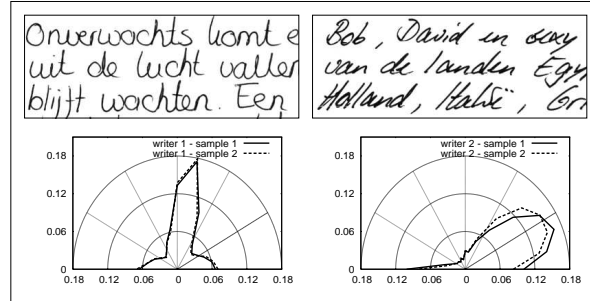 Onverwachts komt e
uit de lucht vallen
blijft wachten. Een
Bob, David en sexy
van de landen Egy
Holland, Italië, Gri
writer 1 - sample 1
writer 1 - sample 2
0.18
0.12
0.06
0
0.18 0.12 0.06 0 0.06 0.12 0.18
writer 2 - sample 1
writer 2 - sample 2
0.18
0.12
0.06
0
0.18 0.12 0.06 0 0.06 0.12 0.18